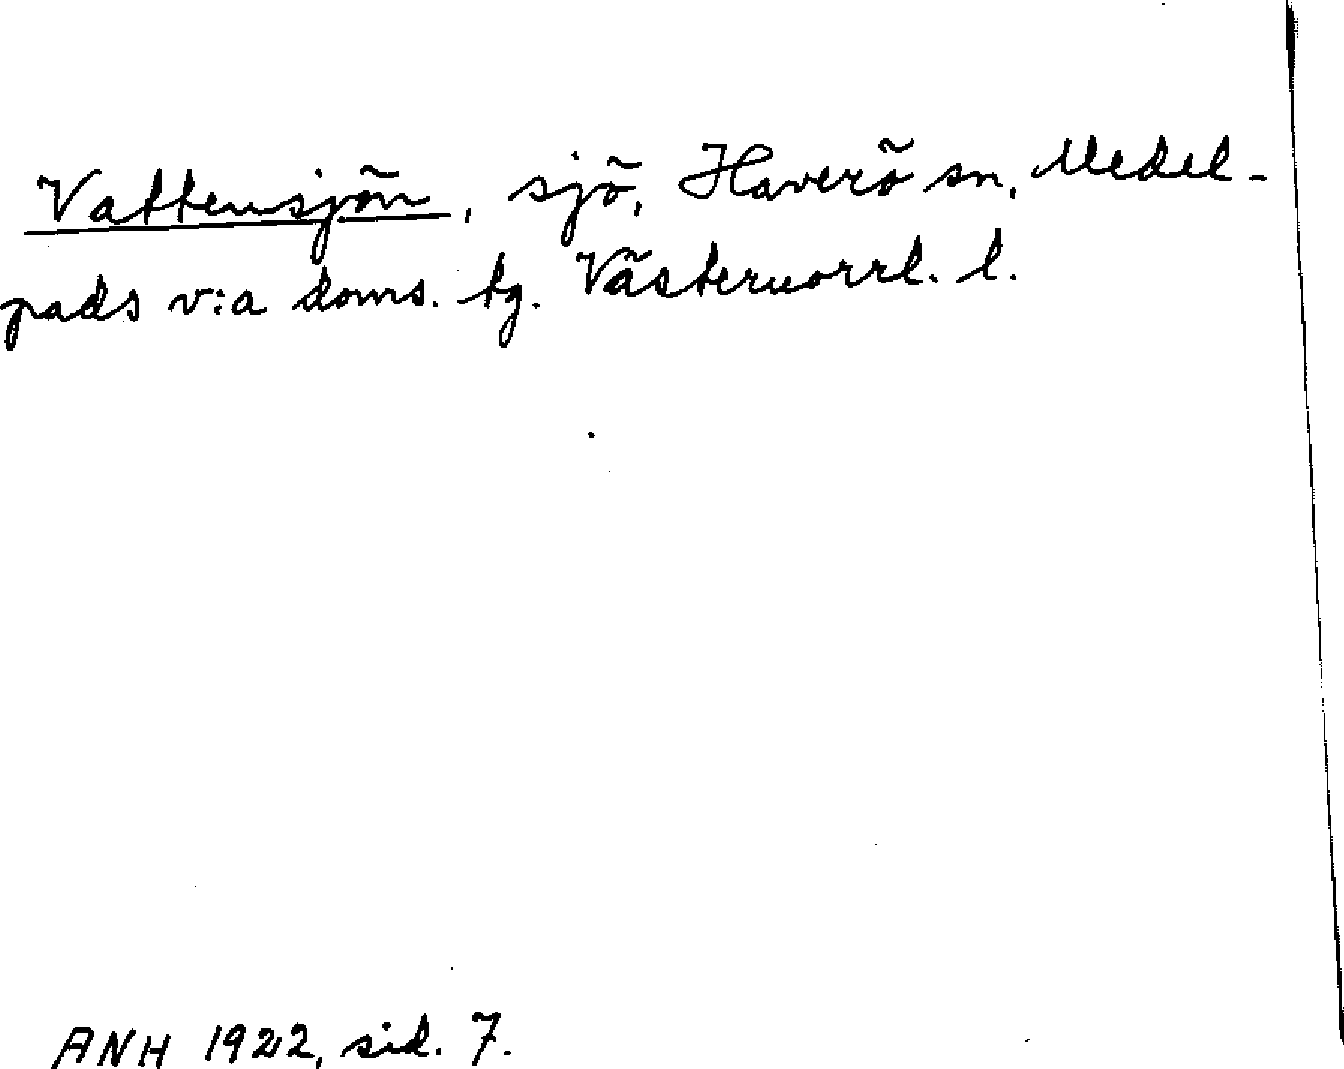 Vattensjön, sjö, Haverö sn, Medel-
pads v:a doms. tg. Västernorrl. l.
ANH 1922, sid. 7.